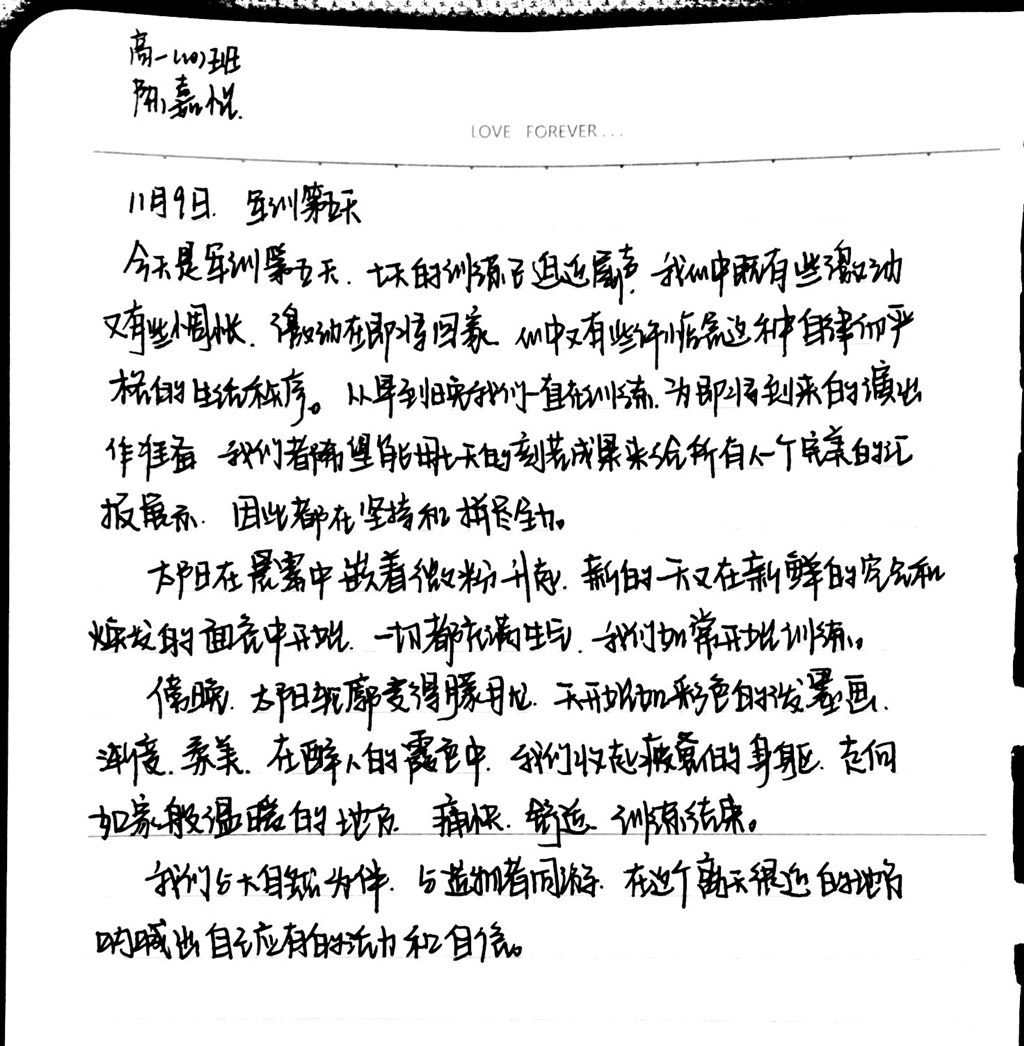 高一(10)班
陈嘉悦.
LOVE FOREVER...
11月9日. 军训第五天
今天是军训第五天. 七天的训练已迫近尾声, 我们中既有些激动
又有些惆怅. 激动在即将回家. 心中又有些许惦念这种自律而严
格的生活秩序。从早到晚我们一直在训练. 为即将到来的演出
作准备 我们都希望能用七天的刻苦成果来给所有人一个完美的汇
报展示. 因此都在坚持和拼尽全力。
太阳在晨雾中嵌着微粉升起. 新的一天又在新鲜的空气和
焕发的面容中开始. 一切都充满生气. 我们如常开始训练。
傍晚. 太阳轮廓变得朦胧. 天开始如彩色的泼墨画.
渐变. 柔美. 在醉人的霞色中. 我们收起疲惫的身躯. 走向
如家般温暖的地方. 痛快. 舒适. 训练结束。
我们与大自然为伴. 与造物者同游. 在这个离天很近的地方
呐喊出自己应有的活力和自信。